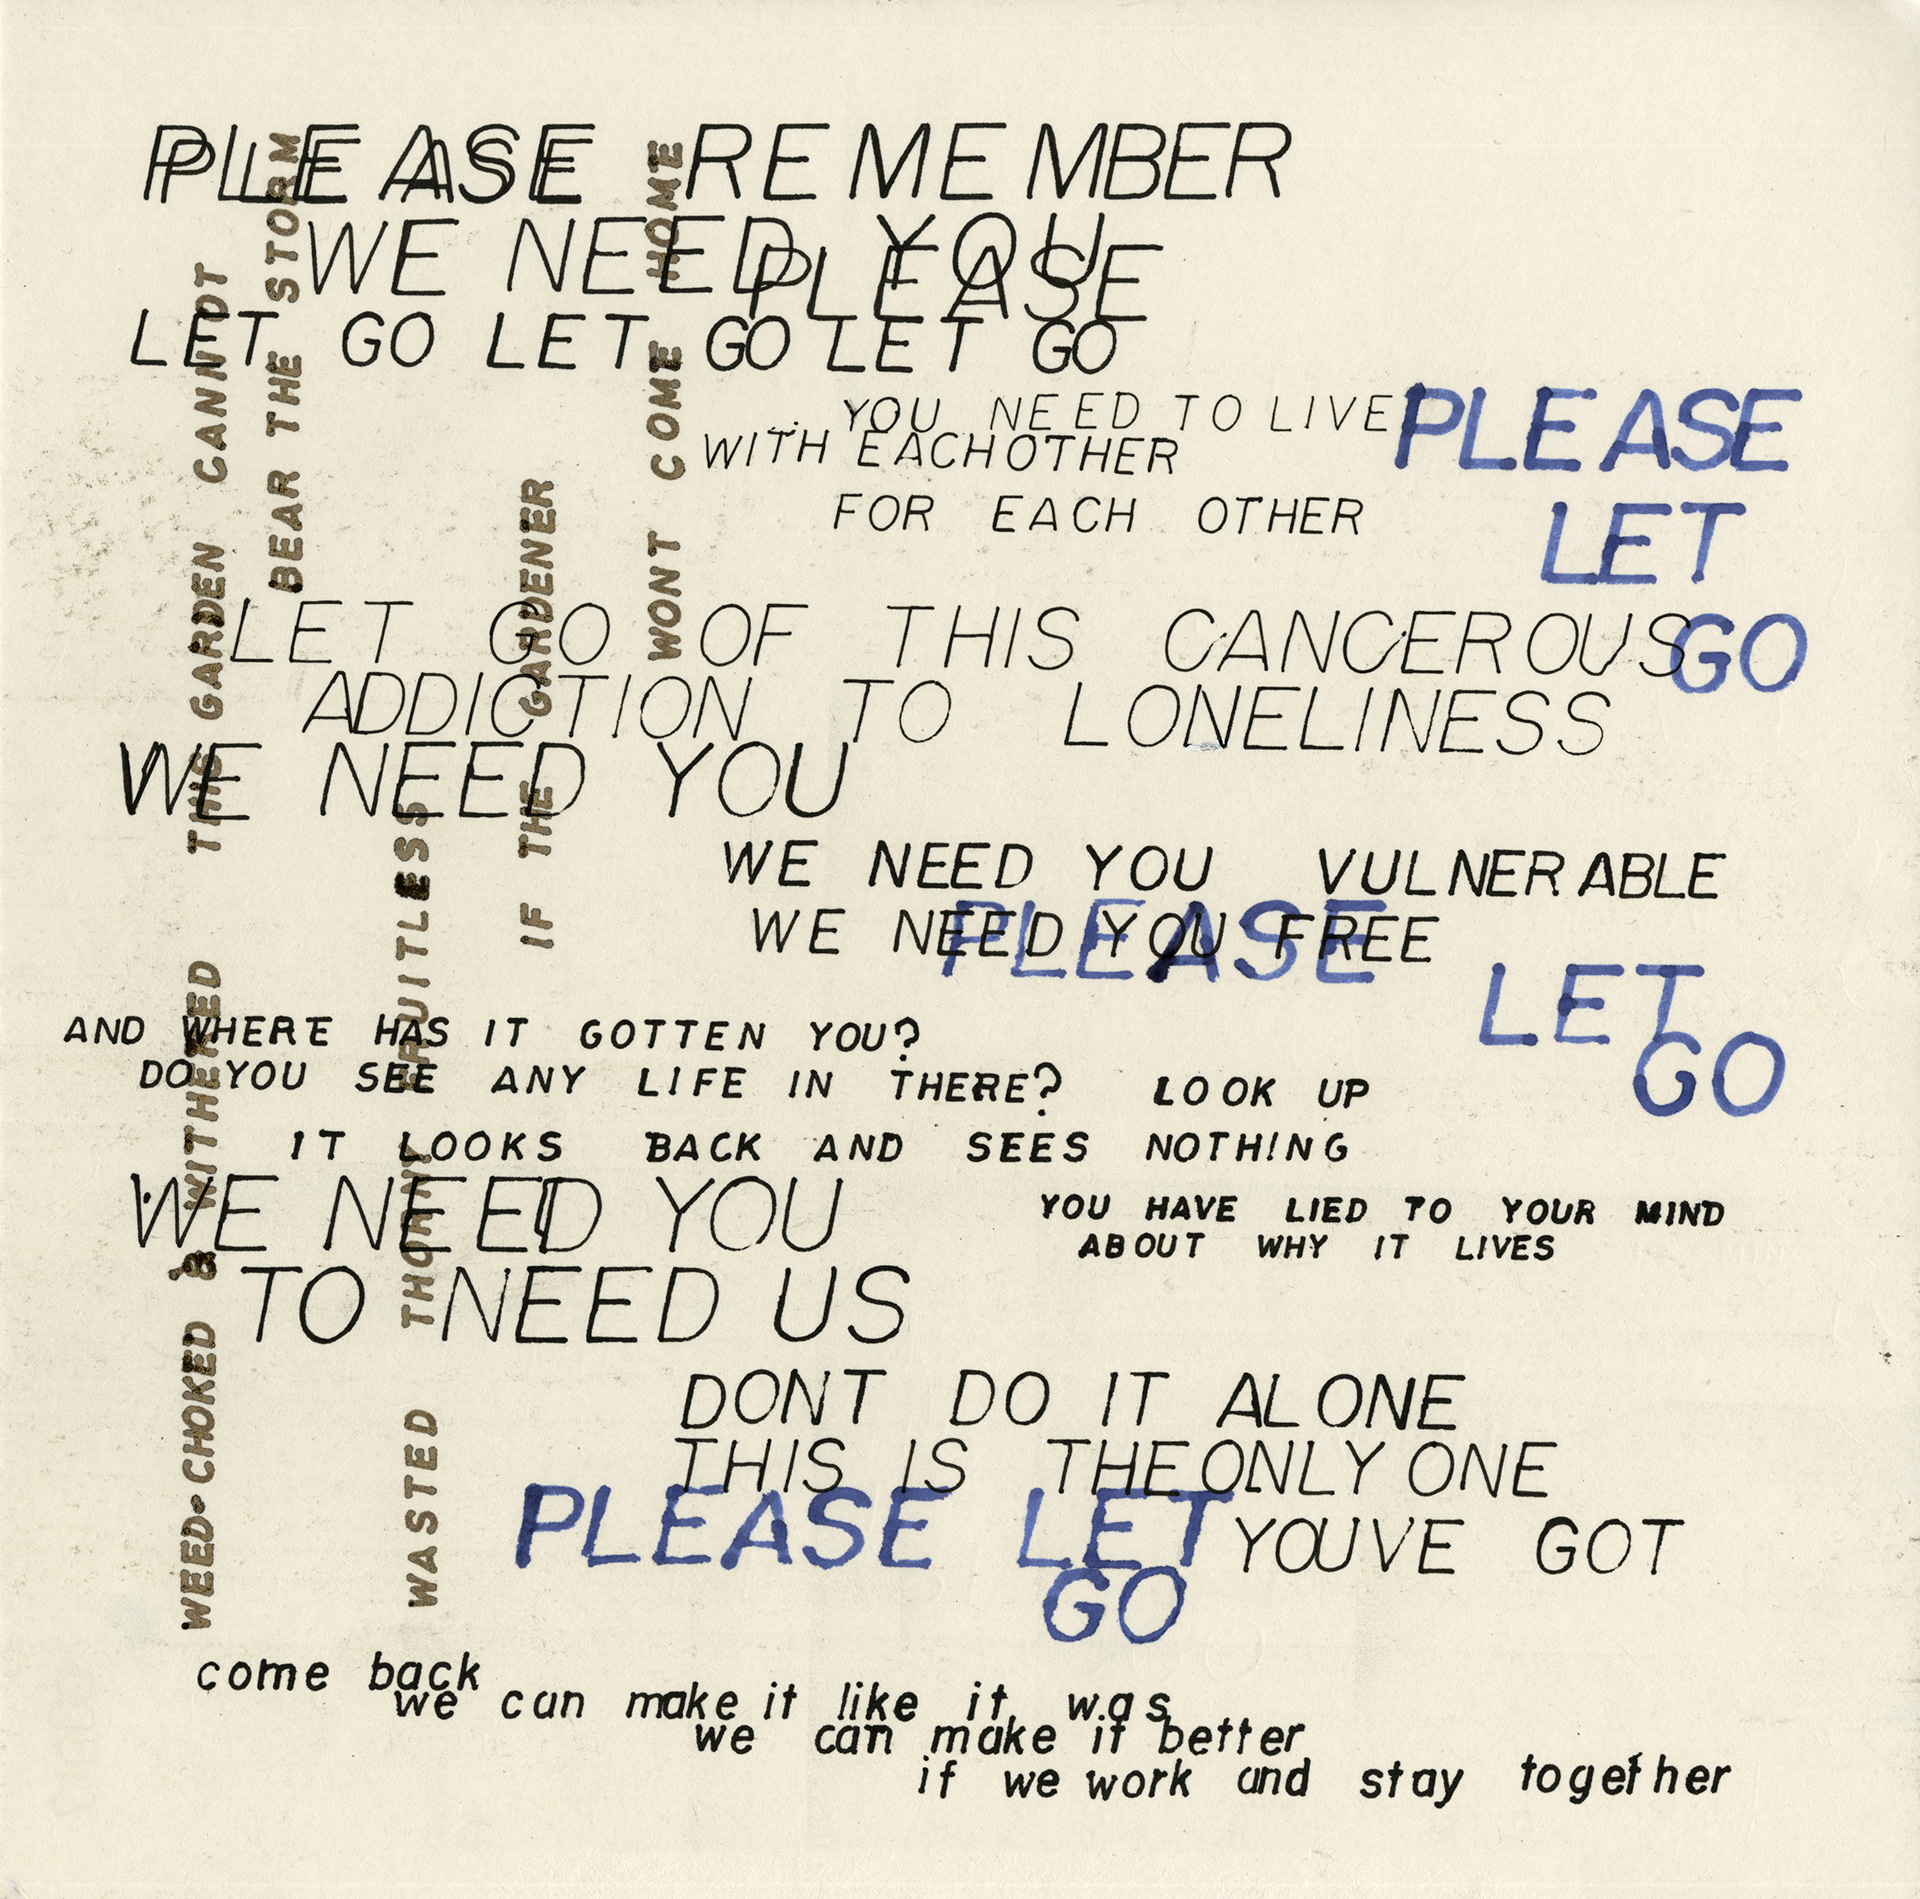 PLEASE REMEMBER
WE NEED YOU
PLEASE
LET GO LET GO LET GO
YOU NEED TO LIVE
WITH EACHOTHER
FOR EACH OTHER
PLEASE
LET
GO
LET GO OF THIS CANCEROUS
ADDICTION TO LONELINESS
WE NEED YOU
WE NEED YOU VULNERABLE
WE NEED YOU FREE
PLEASE
LET
GO
AND WHERE HAS IT GOTTEN YOU?
DO YOU SEE ANY LIFE IN THERE? LOOK UP
IT LOOKS BACK AND SEES NOTHING
WE NEED YOU
TO NEED US
YOU HAVE LIED TO YOUR MIND
ABOUT WHY IT LIVES
DONT DO IT ALONE
THIS IS THE ONLY ONE
YOUVE GOT
PLEASE LET
GO
come back
we can make it like it was
we can make it better
if we work and stay together
WEED-CHOKED & WITHERED THIS GARDEN CANNOT
BEAR THE STORM
WASTED THORNY FRUITLESS
IF THE GARDENER
WONT COME HOME